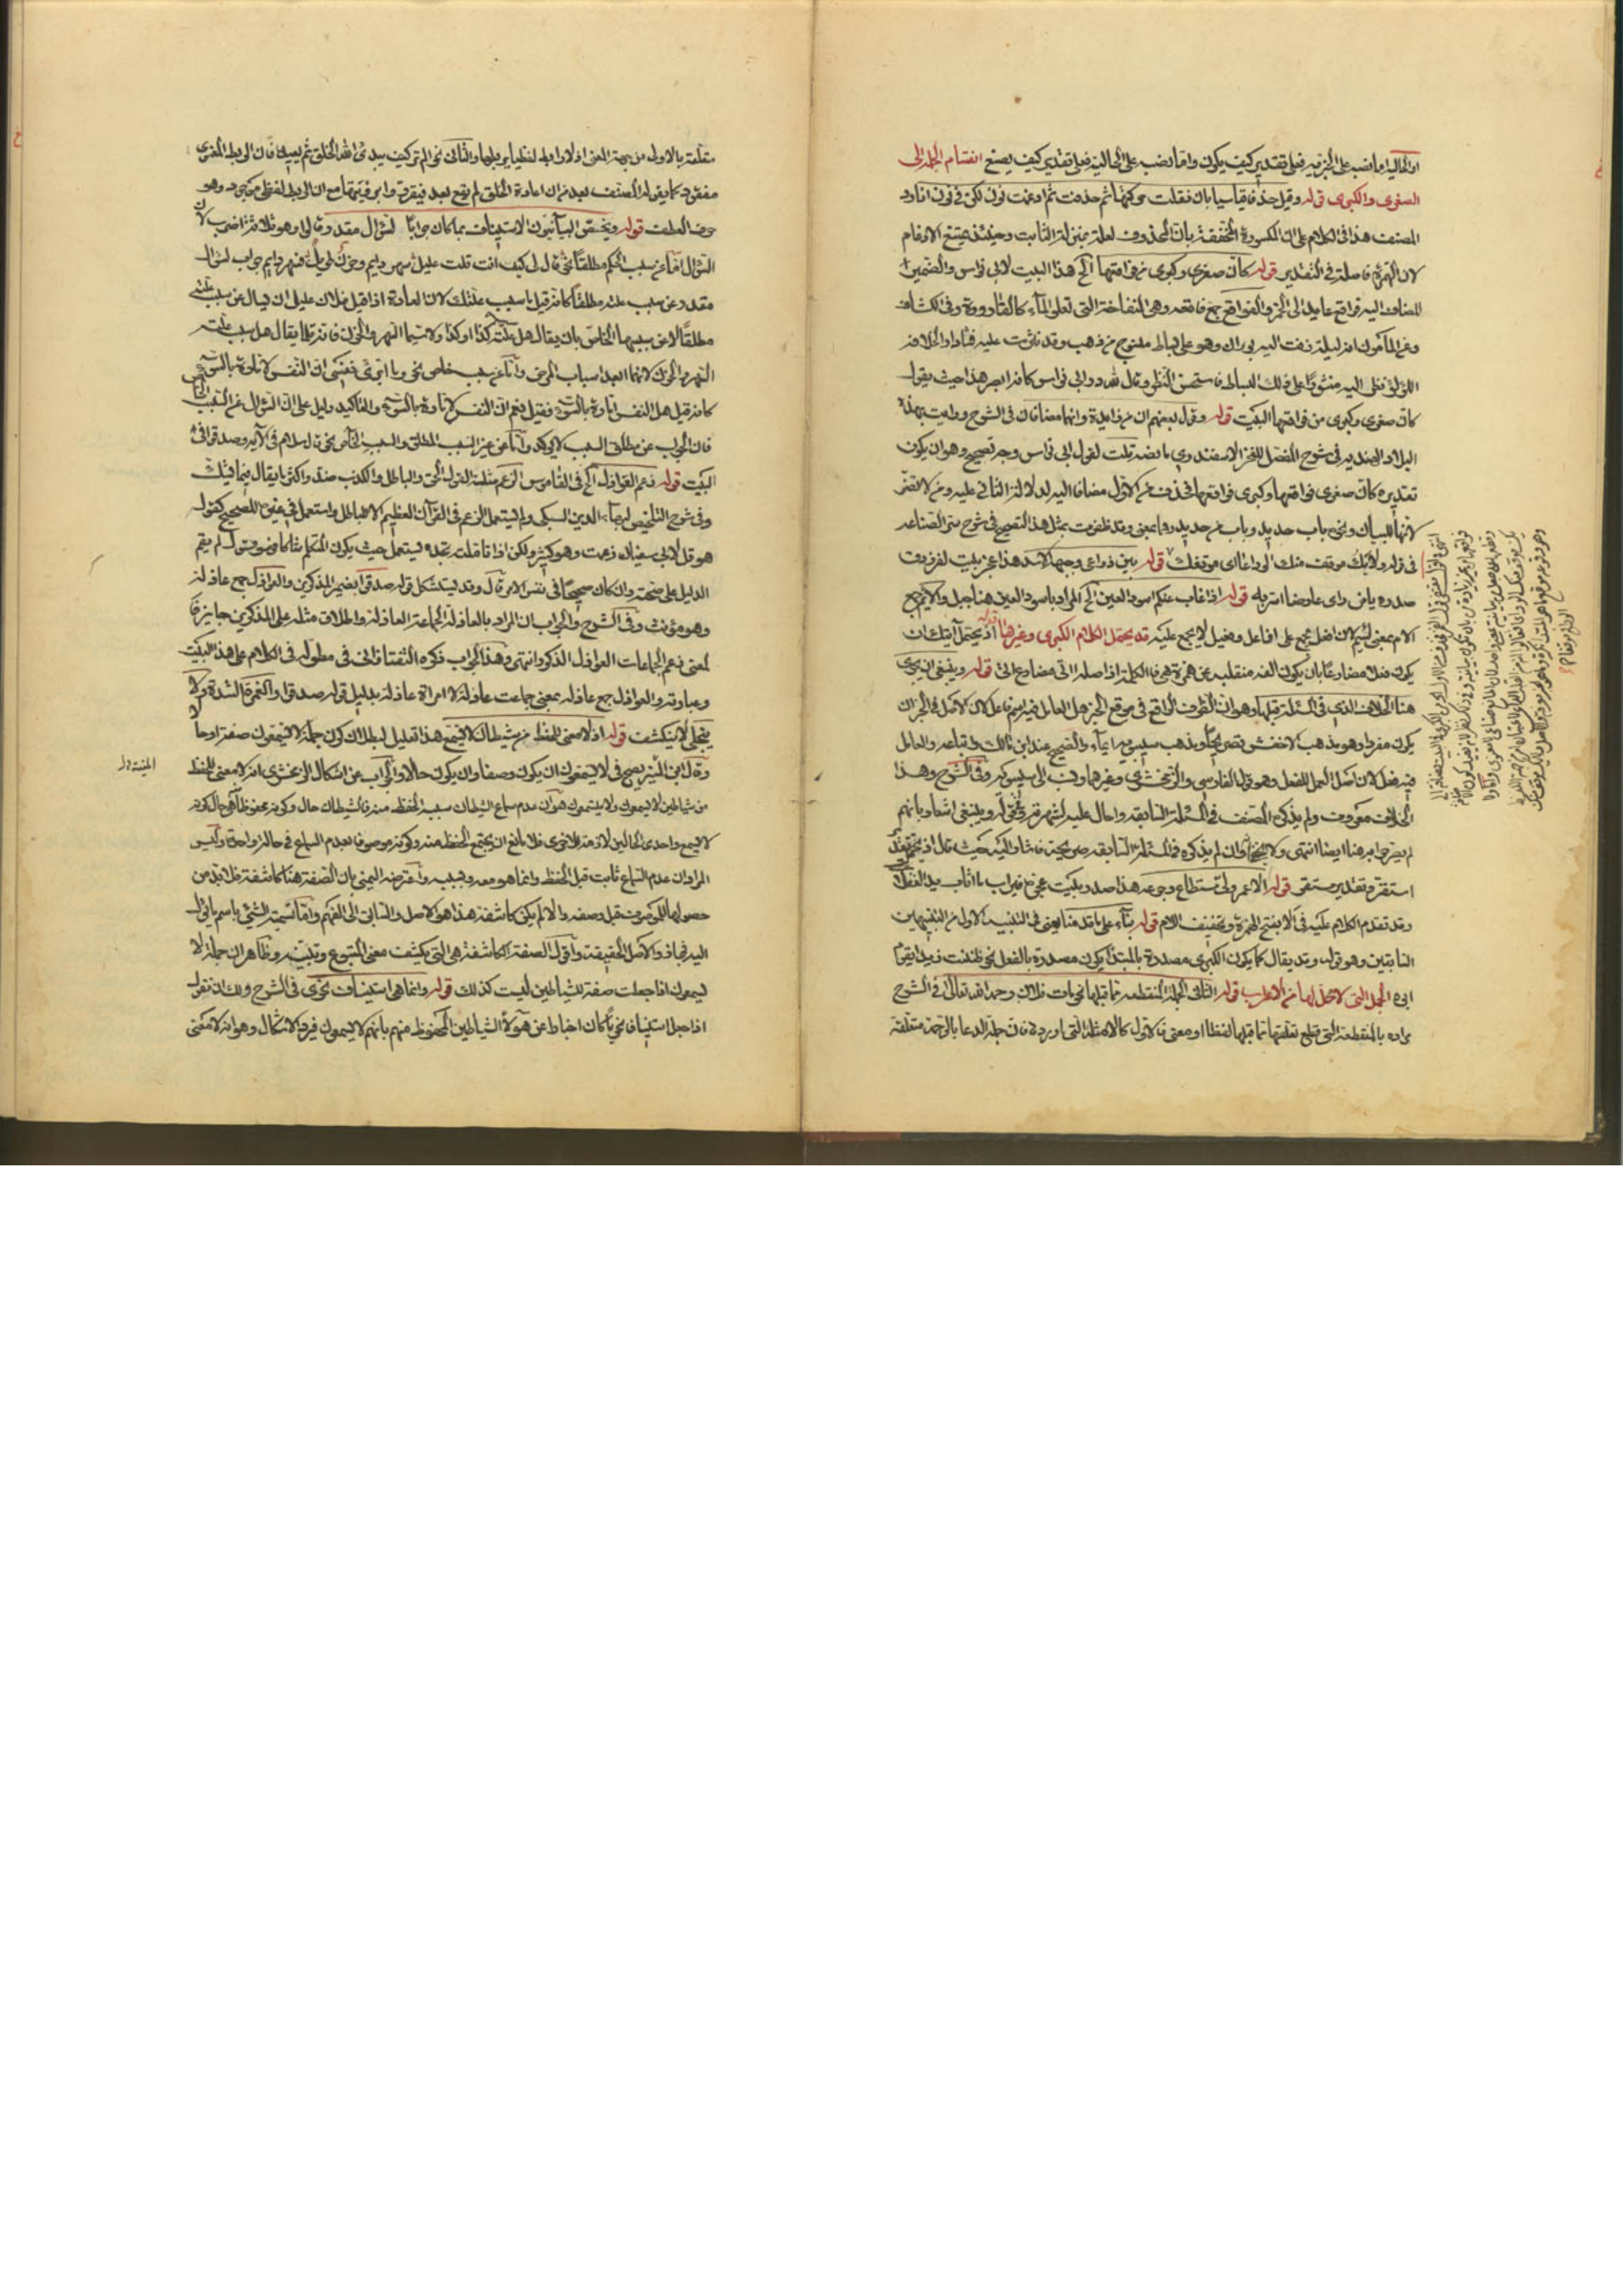 او الحالية اما نصب على الخبرية فعلى تقدير كيف يكون واما نصب على الحالية فعلى تقدير كيف يصنع انقسام الجملة الى
الصغرى والكبرى قوله وقيل حذفا قياسيا بان نقلت حركتها ثم حذفت ثم ادغمت نون لكن في نون انا ورد
المصنف هذا في الكلام على ان المكسورة المخففة بان المحذوف لعلة بمنزلة الثابت وحينئذ يمتنع الادغام
لان الهمزة فاصلة في التقدير قوله كان صغرى وكبرى من فواقعها الخ هذا البيت لابي نواس والضمير
المضاف اليه فواقع عايد الى الخمر والفواقع جمع فاقعة وهي النفاخة التي تعلو الماء كالقارورة وفي الكشاف
وعن المأمون انه ليلة زفت اليه بوران وهو على بساط منسوج من ذهب وقد نثرت عليه نساء دار الخلافة
اللؤلؤ فنظر اليه منثورا على ذلك البساط فاستحسن النظر وقال لله در ابي نواس كانه ابصر هذا حيث يقول
كان صغرى وكبرى من فواقعها البيت قوله وقول بعضهم ان من زايدة وانهما مضافان في الشرح ورايت بهذه
البلاد الهندية في شرح المفصل للفخر الاسفندري ما نصه قلت لقول ابي نواس وجه تصحيح وهو ان يكون
تقديره كان صغرى فواقعها وكبرى فواقعها فحذف من الاول مضافا اليه لدلالة الثاني عليه ومن لا تضر
لانها للبيان ونحو باب حديد وباب من حديد بمعنى وقد ظفرت بمثل هذا التصحيح في شرح سر الصناعة
في قوله ولا يك موقف منك الوداعا اي موقفك قوله بين ذراعي وجبهة الاسد هذا عجز بيت لفرزدق
صدره يا من راى عارضا اسر به قوله اذا غاب عنكم اسود العين الخ المراد باسود العين هنا جبل والايم جمع
الام بمعنى لئيم لان افعل يجمع على افاعل وفعيل لا يجمع عليه قد يحتمل الكلام الكبرى وغيرها اذ يحتمل آتيك ان
يكون فعلا مضارعا بان يكون الفه منقلبة عن همزة هي فاء الكلمة اذ اصله ااتي مضارع اتى قوله وينبغي ان يجري
هنا الخلاف الذي في المسئلة قبلها وهو ان الظرف الواقع في موقع الخبر هل العامل فيه اسم فاعل لان الاصل في الخبر ان
يكون مفردا وهو مذهب الاخفش تصريحا ومذهب سيبويه ايماء والصحيح عند ابن مالك واتباعه والعامل
فيه فعل لان اصل العمل للفعل وهو قول الفارسي والزمخشري وغيرهما ونسب الى سيبويه وفي الشرح وهذا
الخلاف معروف ولم يذكره المصنف في المسئلة السابقة واحال عليه لشهرته وفي قوله وينبغي اشعار بانهم
لم يصرحوا به هنا ايضا انتهى ولا يخفى وان لم يذكره في المسئلة السابقة صريحة فاشار اليه حيث قال اذ يحتمل تقدير
استقر وتقدير مستقر قوله الا عمر ولى مستطاع رجوعه هذا صدر بيت عجزه فيراب ما اثأت يد الغفلات
وقد تقدم الكلام عليه في الا بفتح الهمزة وتخفيف اللام قوله بناء على ما قدمنا يعني في التنبيه الاول من التنبيهين
السابقين وهو قوله وقد يقال كما يكون الكبرى مصدرة بالمبتدا يكون مصدرة بالفعل نحو ظننت زيدا يقوم
ابوه الجمل التي لا محل لها من الاعراب قوله الثاني الجملة المنقطعة عما قبلها نحو مات فلان رحمه الله تعالى في الشرح
مراده بالمنقطعة التي قطع تعلقها عما قبلها لفظا او معنى فالاول كالامثلة التي اوردها فان جملة الدعا بالرحمة متعلقة
متعلقة بالاولى من جهة المعنى اذ لا رابط لفظيا يربطها والثاني نحو الم تر كيف يبدئ الله الخلق ثم يعيده فان الربط المعنوي
مفقود كما يقوله المصنف بعد من ان اعادة الخلق لم يقع بعد فيقرروا برؤيتها مع ان الربط لفظي موجود وهو
حرف العطف قوله ويختص البيانيون الاستيناف بما كان جوابا لسؤال مقدر وقالوا وهو ثلاثة اضرب لان
السؤال اما عن سبب الحكم مطلقا نحو قال لي كيف انت قلت عليل سهر دايم وحزن طويل فسهر دايم جواب لسؤال
مقدر عن سبب علته مطلقا كانه قيل ما سبب علتك لان العادة اذا قيل فلان عليل ان يسال عن سبب علته
مطلقا لا عن سببها الخاص بان يقال هل علته كذا او كذا ولا سيما السهر والحزن فانه قلما يقال هل سبب علته
السهر والحزن لانهما ابعد اسباب المرض واما عن سبب خاص نحو وما ابرئ نفسي ان النفس لامارة بالسوء
كانه قيل هل النفس امارة بالسوء فقيل نعم ان النفس لامارة بالسوء والتاكيد دليل على ان السؤال عن السبب الخاص
فان الجواب عن مطلق السبب لا يؤكد واما عن غير السبب المطلق والسبب الخاص نحو قال سلام في الآية وصدقوا في
البيت قوله زعم العواذل الخ في القاموس الزعم مثلثة القول الحق والباطل والكذب ضد واكثر ما يقال فيما يشك
وفي شرح التلخيص لبهاء الدين السبكي ولم يستعمل الزعم في القرآن العظيم الا للباطل واستعمل في غيره للصحيح كقول
هرقل لابي سفيان زعمت وهو كثير ولكن اذا تاملته تجده يستعمل حيث يكون المتكلم شاكا فهو كقول لم يقم
الدليل على صحته وان كان صحيحا في نفس الامر قال وقد يستشكل قوله صدقوا بضمير المذكرين والعواذل جمع عاذلة
وهو مؤنث وفي الشرح والجواب ان المراد بالعاذلة الجماعة العاذلة واطلاق مثله على المذكرين جايز فا
لمعنى زعم الجماعات العواذل الذكور انتهى وهذا الجواب ذكره التفتازاني في مطوله في الكلام على هذا البيت
وعبارته والعواذل جمع عاذلة بمعنى جماعت عاذلة لا امراة عاذلة بدليل قوله صدقوا والغمرة الشدة ولا
ينجلي لا ينكشف قوله اذ لا معنى للحفظ من شيطان لا يسمع هذا تعليل لبطلان كون جملة لا يسمعون صفة او حا
وقال ابن المنير يصح في لا يسمعون ان يكون وصفا وان يكون حالا والجواب عن اشكال الزمخشري انه لا معنى للحفظ
من شياطين لا يسمعون ولا يستمعون هو ان عدم سماع الشيطان سببه الحفظ منه فالشيطان حال وكونه محفوظا هي حال كونه
لا يسمع واحدى الحالين لازمة للاخرى فلا مانع ان يجتمع الحفظ منه وكونه موصوفا بعدم السماع في حالة واحدة وليس
المراد ان عدم السماع ثابت قبل الحفظ وانما هو معه وبسببه واعترضه اليمني بان الصفة هنا كاشفة فلا بد من
حصولها للموصوف قبل وصفه والا لم يكن كاشفة هذا هو الاصل والسابق الى الفهم واما تسمية الشيء باسم ما يؤل
اليه فمجاز والاصل الحقيقة واقول الصفة الكاشفة هي التي يكشف معنى المتبوع وتبينه وظاهر ان جملة لا
يسمعون اذا جعلت صفة للشياطين ليست كذلك قوله وانما هي استيناف نحوي في الشرح ولك ان تقول
اذا جعل استينافا نحويا كان اخبارا عن هؤلاء الشياطين المحفوظ منهم بانهم لا يسمعون فيرد الاشكال وهو انه لا معنى